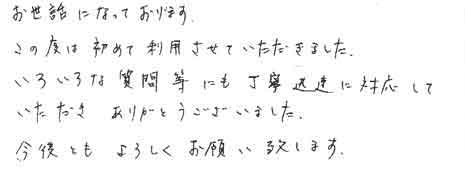 お世話になっております.
この度は初めて利用させていただきました.
いろいろな質問等にも丁寧迅速に対応して
いただき ありがとうございました.
今後とも よろしくお願い致します.